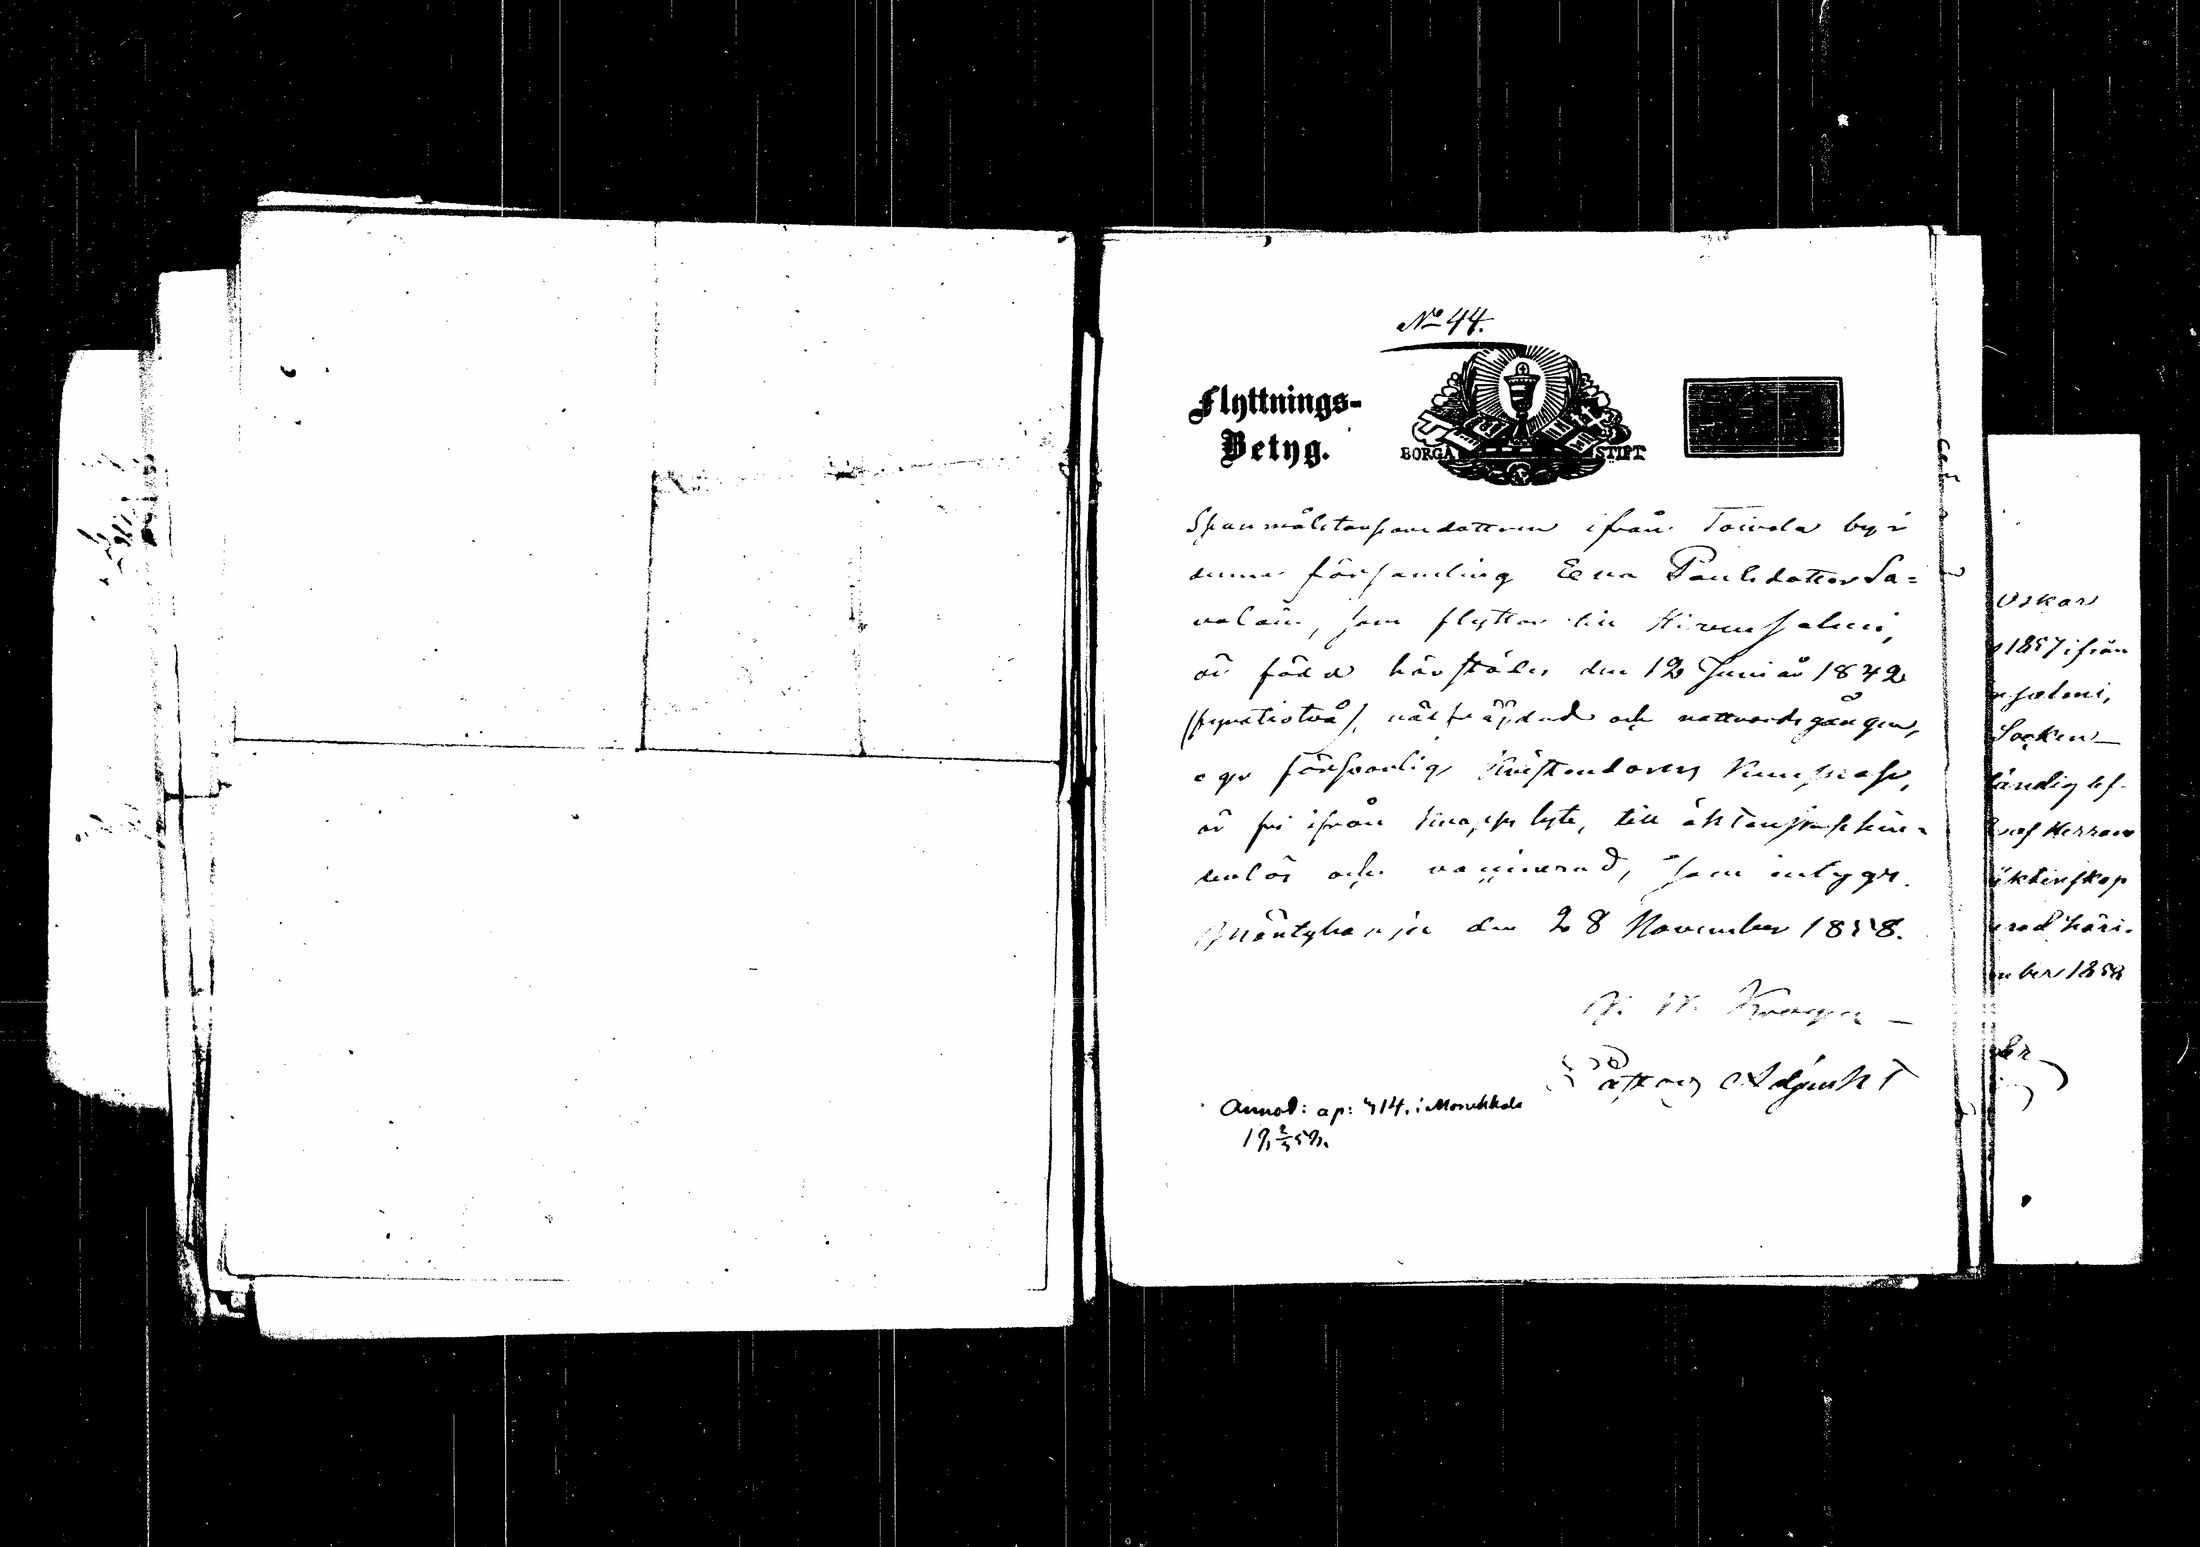 No 44.
Flyttnings-
Betyg.
BORGÅ STIFT
Spanmålstorparedottren ifrån Toivola by i
denna församling Eeva Paulsdotter Sa=
valain, som flyttar till Hirvensalmi,
är född härstädes den 12 Juni år 1842
(fyratiotvå), välfräjdad och nattvardsgången,
eger försvarlig Kristendoms Kunskap,
är fri ifrån Kroppslyte, till äktenskap hin=
derlös och vaccinerad, som intygar.
Mäntyharju den 28 November 1858.
Adjunkt
Annot: ap: 414. i Monikkala
Oskar
1857 ifrån
salmi,
Socken
ständig
af Herrans
äktenskap
rad häri.
mber 1858